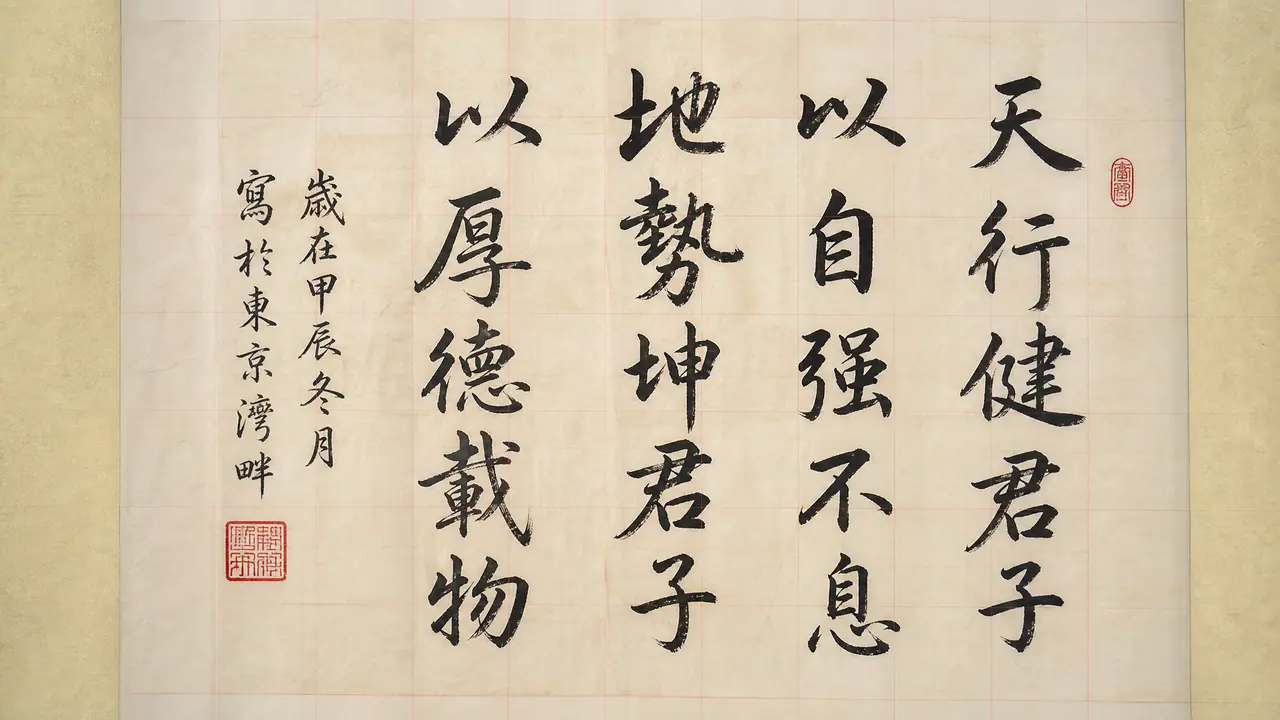 天行健君子
以自强不息
地勢坤君子
以厚德載物
歲在甲辰冬月
寫於東京灣畔